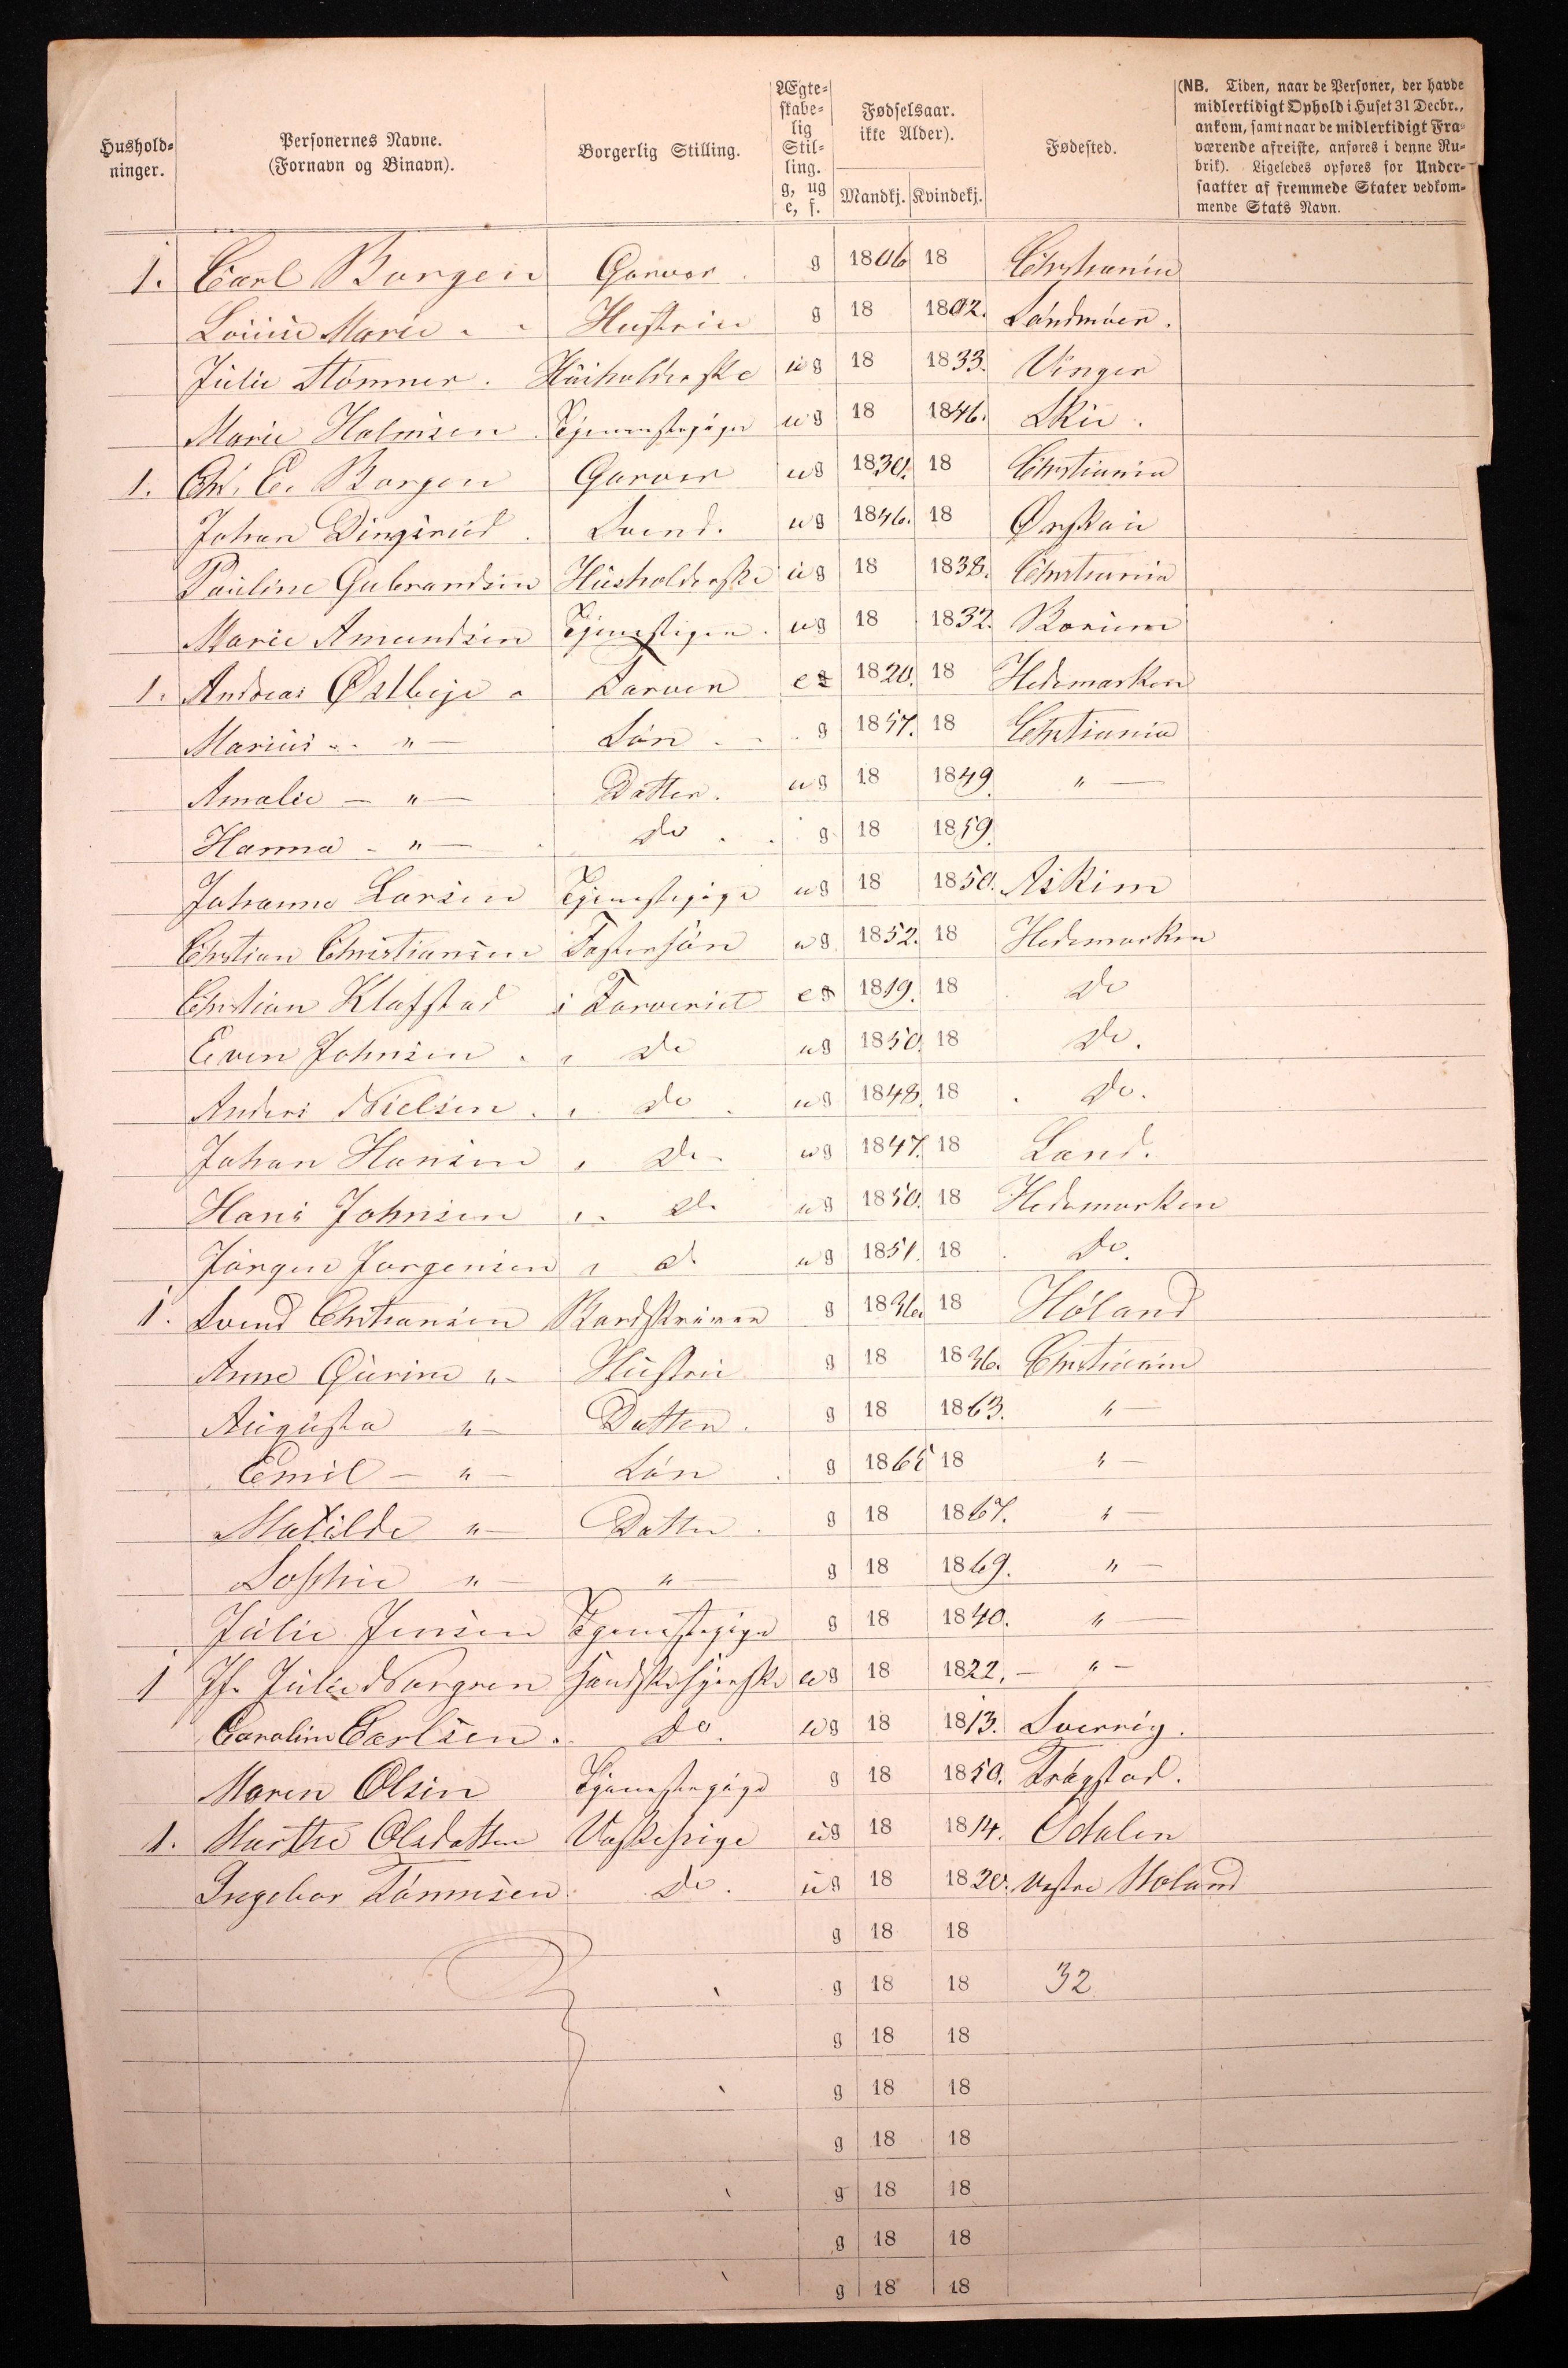 Hushold-
ninger.
Personernes Navne.
(Fornavn og Binavn).
Borgerlig Stilling.
Ægte-
skabe-
lig
Stil-
ling.
g, ug
e, f.
Fødselsaar.
ikke Alder).
Mandkj. Kvindekj.
Fødested.
(NB. Tiden, naar de Personer, der havde
midlertidigt Ophold i Huset 31 Decbr.,
ankom, samt naar de midlertidigt Fra-
værende afreiste, anføres i denne Ru-
brik). Ligeledes opføres for Under-
saatter af fremmede Stater vedkom-
mende Stats Navn.
1. Carl Borgen Garver g 1806 18 Christiania
Louise Marie " " Hustru g 18 1802. Søndmøer.
Julie Stømner. Huusholderske ug 18 1833. Vinger
Marie Halmsen Tjenestepige ug 18 1846. Skie.
1. Chr. E. Borgen Garver ug 1830. 18 Christiania
Johan Dingsrud Svend. ug 1846. 18 Ørskou
Pauline Gulbrandsen Huusholderske ug 18 1838. Christiania
Marie Amundsen Tjenestepige. ug 18 1832. Barum
1. Andreas Østbye Farver e 1820. 18 Hedemarken
Marius " Søn g 1857. 18 Christiania
Amalie — " — Datter. ug 18 1849. " —
Hanna - " — do g 18 1859.
Johanne Larsen Tjenestepige ug 18 1850. Askim
Christian Christiansen Fostersøn ug 1852. 18 Hedemarken
Christian Klafstad i Farveriet e 1819. 18 do
Even Johnsen " do ug 1850. 18 do.
Anders Nielsen. " do ug 1848. 18 do.
Johan Hansen " do ug 1847. 18 Land.
Hans Johnsen " do ug 1850. 18 Hedemarken
Jørgen Jørgensen " do ug 1851. 18 do.
1. Svend Christiansen Bordskriver g 1836. 18 Høland
Anne Gurine " - Hustru g 18 1836. Christiania
Augusta " - Datter. g 18 1863. " —
Emil — " — Søn g 1865 18 " —
Matilde " — Datter. g 18 1867. " —
Sophie " — " — g 18 1869. " —
Julie Jensen Tjenestepige g 18 1840. " —
1 Jf. Julie Norgren Handskesyerske ug 18 1822. — " —
Caroline Carlsen. do. ug 18 1813. Sverrig.
Maren Olsen Tjenestepige g 18 1850. Trøgstad.
1. Marthe Olsdatter Vaskepige ug 18 1814. Odalen
Ingebor Tønnesen do. ug 18 1820. Vestre Holand
g 18 18
g 18 18 32
g 18 18
g 18 18
g 18 18
g 18 18
g 18 18
g 18 18